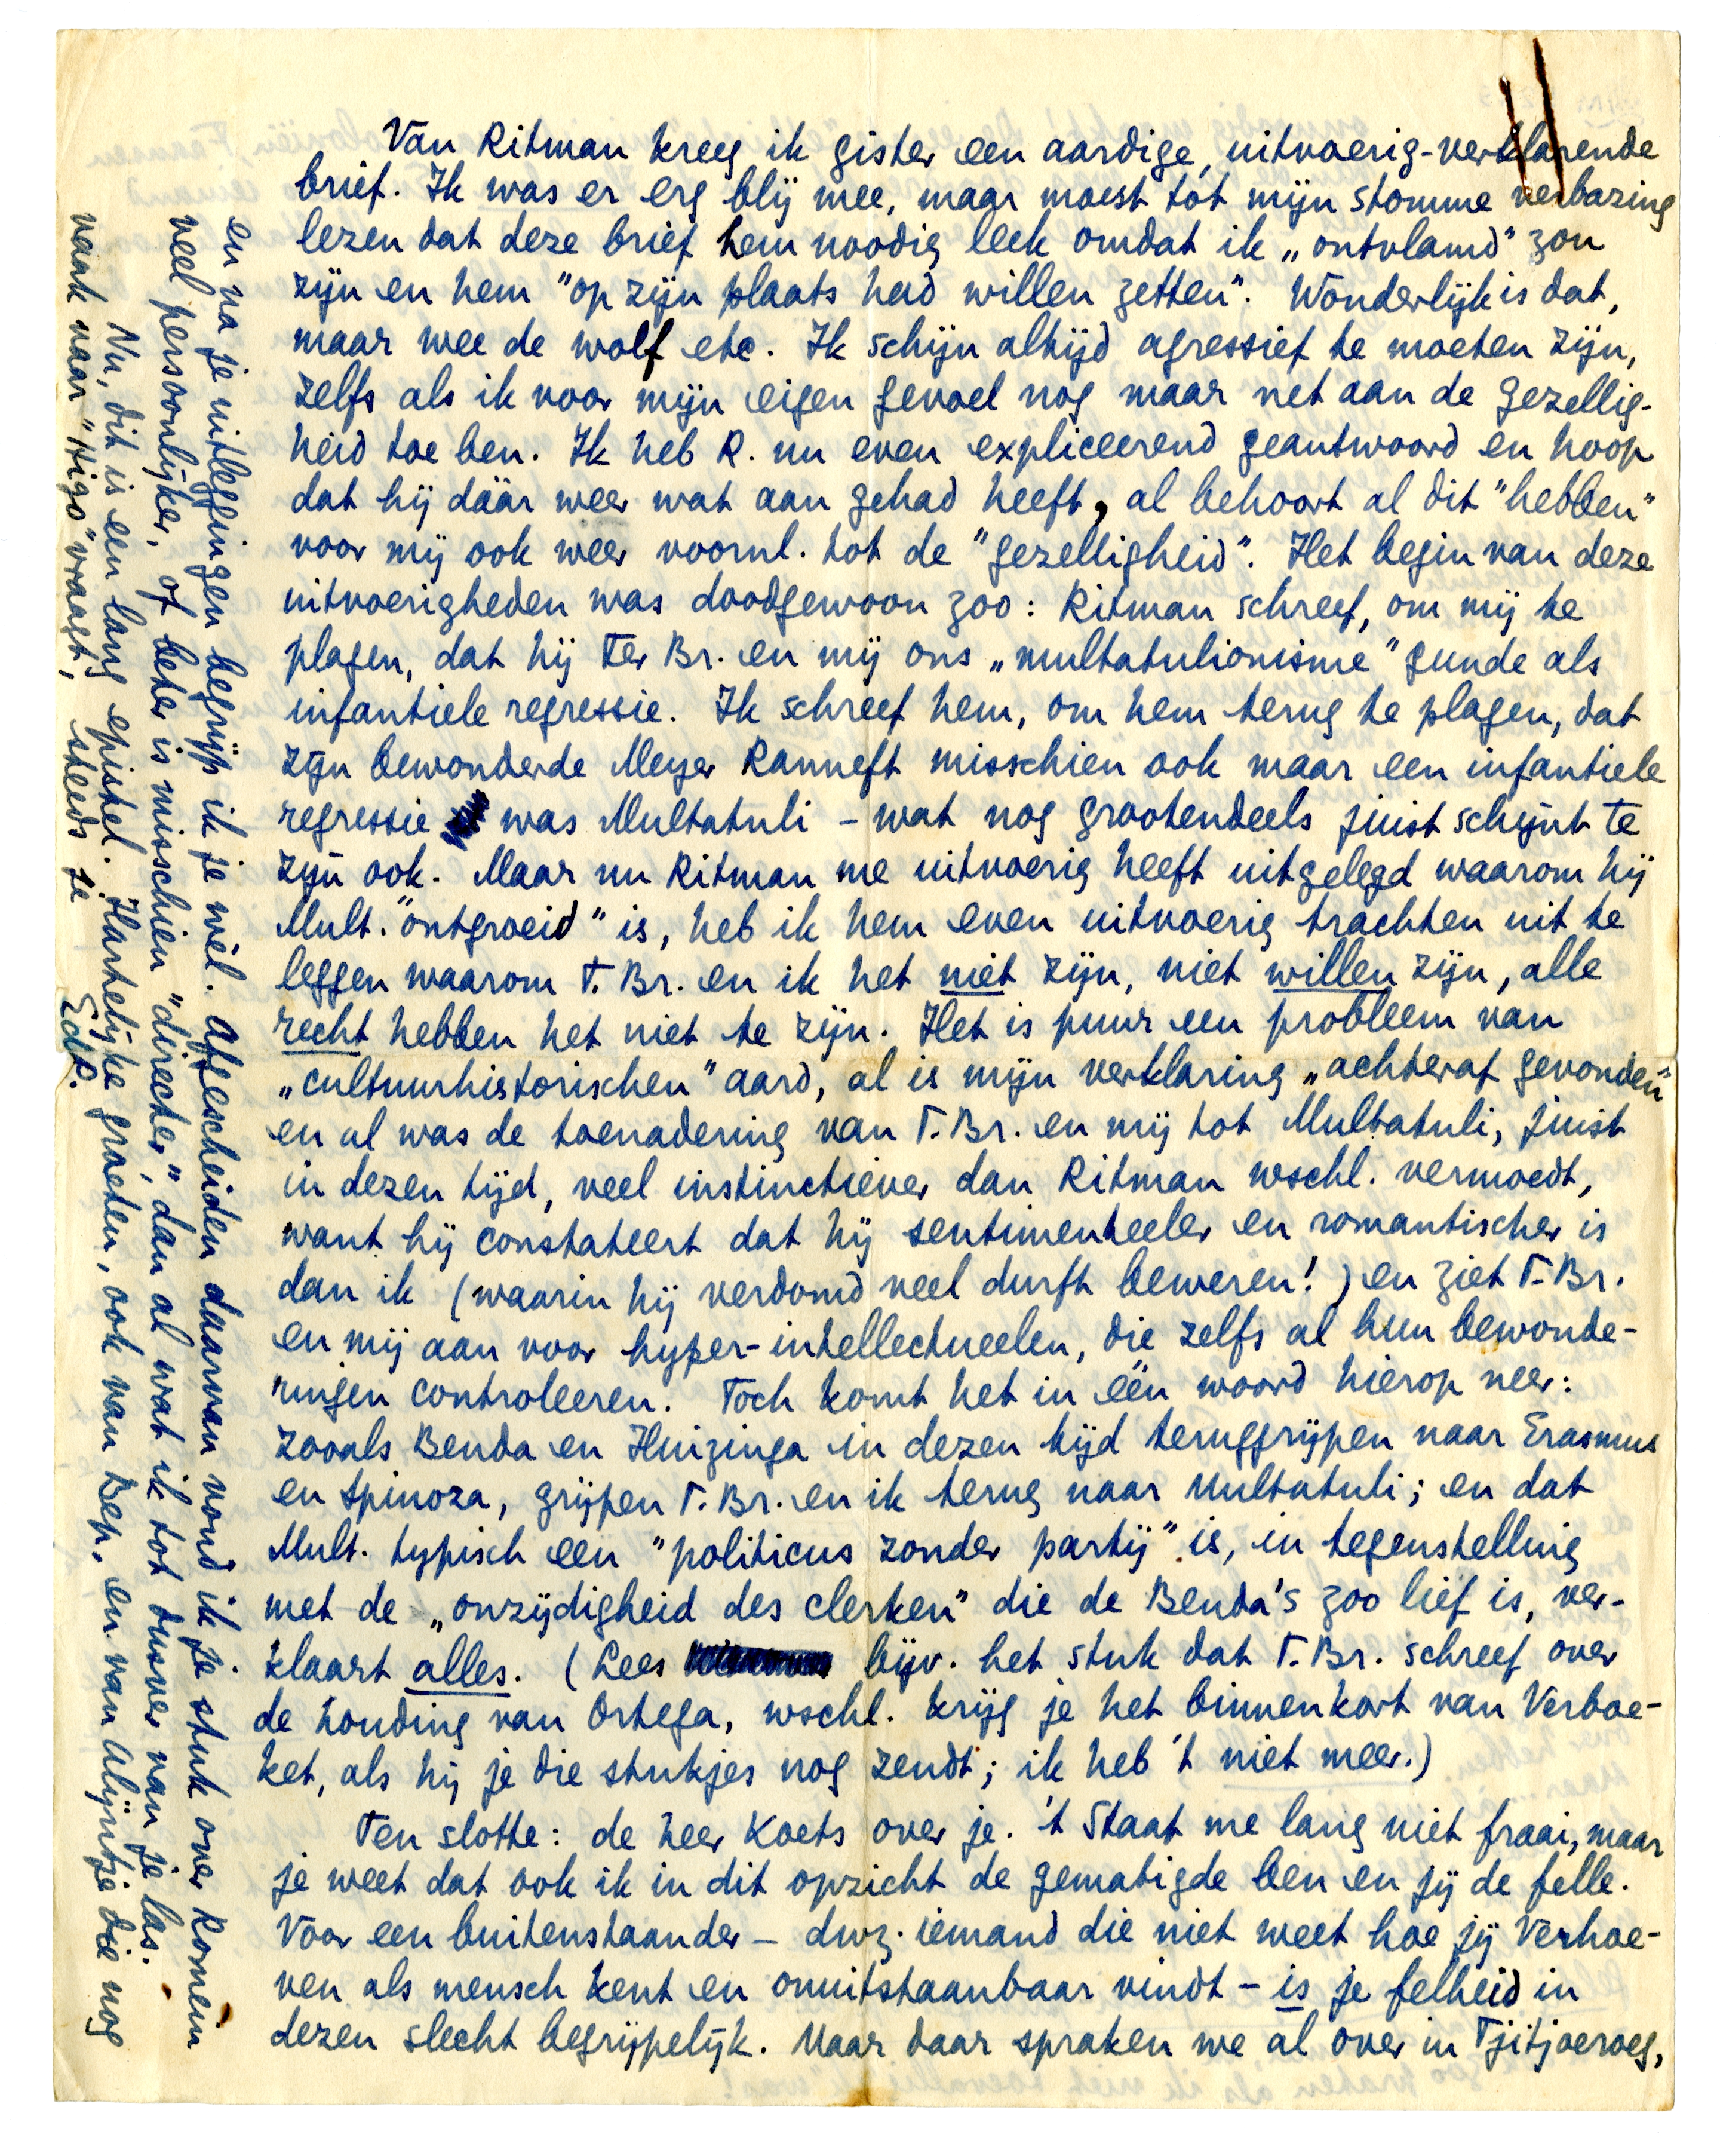 Van Ritman kreeg ik gister een aardige, uitvoerig-verklarende
brief. Ik was er erg blij mee, maar moest tot mijn stomme verbazing
lezen dat deze brief hem noodig leek omdat ik „ontvlamd” zou
zijn en hem "op zijn plaats had willen zetten". Wonderlijk is dat,
maar wee de wolf etc. Ik schijn altijd agressief te moeten zijn,
zelfs als ik voor mijn eigen gevoel nog maar net aan de gezellig-
heid toe ben. Ik heb R. nu even expliceerend geantwoord en hoop
dat hij dáár weer wat aan gehad heeft, al behoort al dit "hebben"
voor mij ook weer voornl. tot de "gezelligheid". Het begin van deze
uitvoerigheden was doodgewoon zoo: Ritman schreef, om mij te
plagen, dat hij Ter Br. en mij ons „multatulionisme” gunde als
infantiele regressie. Ik schreef hem, om hem terug te plagen, dat
zijn bewonderde Meyer Ranneft misschien ook maar een infantiele
regressie was Multatuli – wat nog grootendeels juist schijnt te
zijn ook. Maar nu Ritman me uitvoerig heeft uitgelegd waarom hij
Mult. "ontgroeid" is, heb ik hem even uitvoerig trachten uit te
leggen waarom T. Br. en ik het niet zijn, niet willen zijn, alle
recht hebben het niet te zijn. Het is puur een probleem van
„cultuurhistorischen” aard, al is mijn verklaring „achteraf gevonden”
en al was de toenadering van T. Br. en mij tot Multatuli, juist
in dezen tijd, veel instinctiever dan Ritman wschl. vermoedt,
want hij constateert dat hij sentimenteeler en romantischer is
dan ik (waarin hij verdomd veel durft beweren!) en ziet T. Br.
en mij aan voor hyper-intellectueelen, die zelfs al hun bewonde-
ringen controleeren. Toch komt het in één woord hierop neer:
zooals Benda en Huizinga in dezen tijd teruggrijpen naar Erasmus
en Spinoza, grijpen T. Br. en ik terug naar Multatuli; en dat
Mult. typisch een "politicus zonder partij" is, in tegenstelling
met de „onzijdigheid des clerken” die de Benda's zoo lief is, ver-
klaart alles. (Lees bijv. het stuk dat T. Br. schreef over
de houding van Ortega, wschl. krijg je het binnenkort van Verboe-
ket, als hij je die stukjes nog zendt; ik heb 't niet meer.)
Ten slotte: de heer Koets over je. 't Staat me lang niet fraai, maar
je weet dat ook ik in dit opzicht de gematigde ben en jij de felle.
Voor een buitenstaander – dwz. iemand die niet weet hoe jij Verhoe-
ven als mensch kent en onuitstaanbaar vindt – is je felheid in
dezen slecht begrijpelijk. Maar daar spraken we al over in Tjitjoeroeg,
en na je uitleggingen begrijp ik je wèl. Afgescheiden daarvan vond ik je stuk over Komein
veel persoonlijker, of beter is misschien "directer", dan al wat ik tot dusver van je las.
Nu, dit is een lang epistel. Hartelijke groeten, ook van Bep, en van Alijntje die nog
vaak naar "Higo" vraagt, steeds je
EdP.